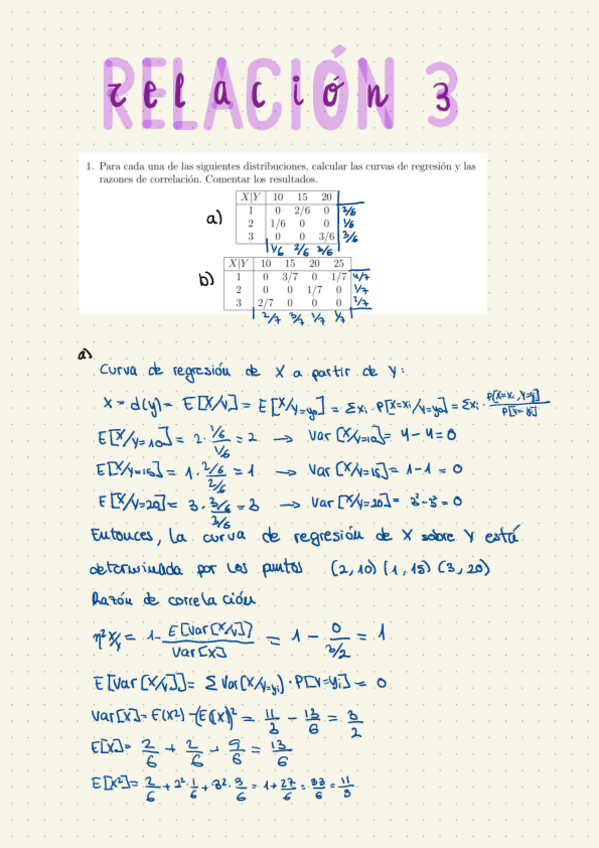 RELACIÓN 3
relación 3
1. Para cada una de las siguientes distribuciones, calcular las curvas de regresión y las
razones de correlación. Comentar los resultados.
a)
X|Y 10 15 20
1 0 2/6 0 2/6
2 1/6 0 0 1/6
3 0 0 3/6 3/6
1/6 2/6 3/6
b)
X|Y 10 15 20 25
1 0 3/7 0 1/7 4/7
2 0 0 1/7 0 1/7
3 2/7 0 0 0 2/7
2/7 3/7 1/7 1/7
a)
Curva de regresión de X a partir de Y:
X = d(y) = E[X/Y] = E[X/Y=y0] = Σxi · P[X=xi/Y=y0] = Σxi · P[X=xi, Y=yj]/P[Y=yj]
E[X/Y=10] = 2 · 1/6 / 1/6 = 2 → Var[X/Y=10] = 4 - 4 = 0
E[X/Y=15] = 1 · 2/6 / 2/6 = 1 → Var[X/Y=15] = 1 - 1 = 0
E[X/Y=20] = 3 · 3/6 / 3/6 = 3 → Var[X/Y=20] = 3² - 3² = 0
Entonces, la curva de regresión de X sobre Y está
determinada por los puntos (2,10) (1,15) (3,20)
Razón de correlación
η² X/Y = 1 - E[Var[X/Y]]/Var[X] = 1 - 0/3/2 = 1
E[Var[X/Y]] = Σ Var(X/Y=yi) · P[Y=yi] = 0
Var[X] = E(X²) - (E(X))² = 11/3 - 13/6 = 3/2
E[X] = 2/6 + 2/6 + 9/6 = 13/6
E[X²] = 2/6 + 2² · 1/6 + 3² · 3/6 = 1 + 27/6 = 33/6 = 11/3